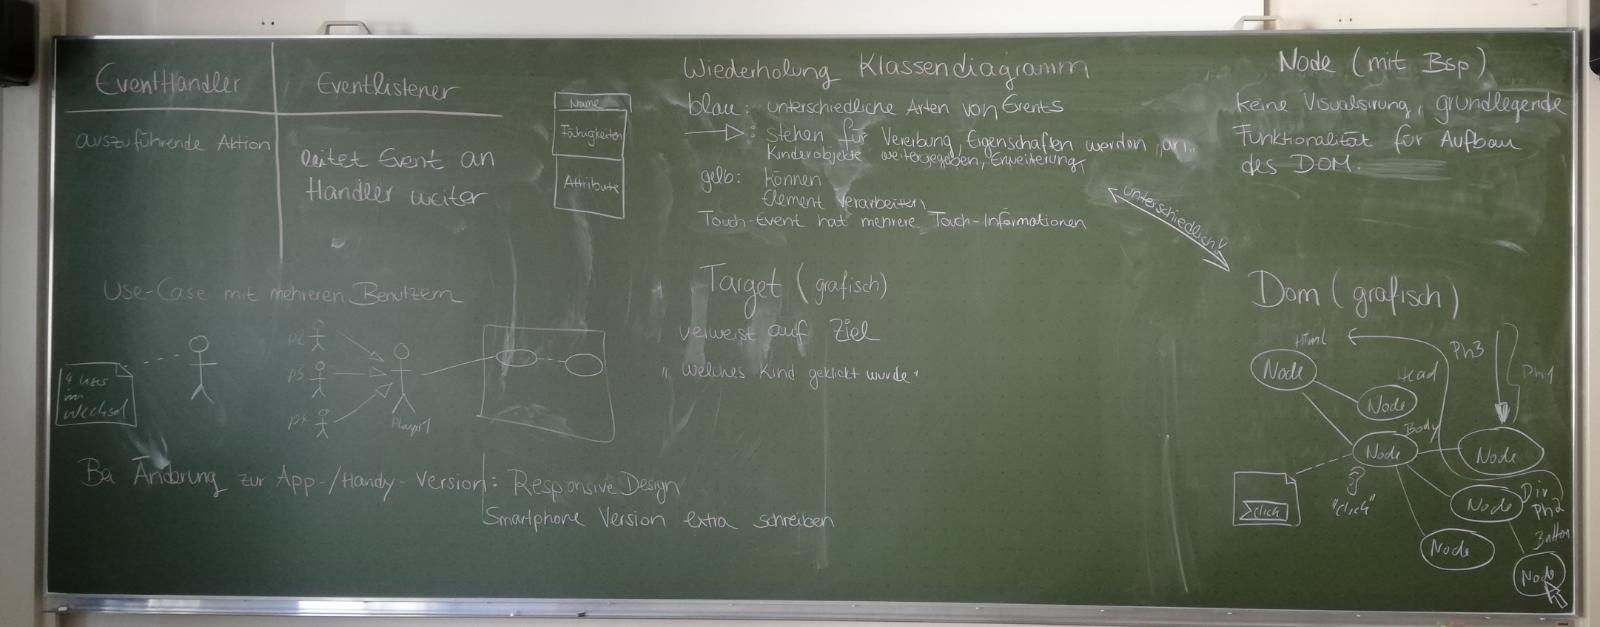 EventHandler
Eventlistener
auszuführende Aktion
leitet Event an
Handler weiter
Name
Fähigkeiten
Attribute
Use-Case mit mehreren Benutzern
4 User
im
Wechsel
P2
P3
P4
Player1
Bei Änderung zur App-/Handy-Version: Responsive Design
Smartphone Version extra schreiben
Wiederholung Klassendiagramm
blau: unterschiedliche Arten von Events
: stehen für Vererbung, Eigenschaften werden an
Kinderobjekte weitergegeben, Erweiterung
gelb: können
Element verarbeiten
Touch-Event hat mehrere Touch-Informationen
Target (grafisch)
verweist auf Ziel
"welches Kind geklickt wurde"
Node (mit Bsp)
keine Visualsirung, grundlegende
Funktionalität für Aufbau
des DOM.
unterschiedlich!
Dom (grafisch)
Html
Ph3
Ph1
Node
Head
Node
Body
Node
Node
Σclick
"click"
Node
Div
Ph2
Node
Button
Node